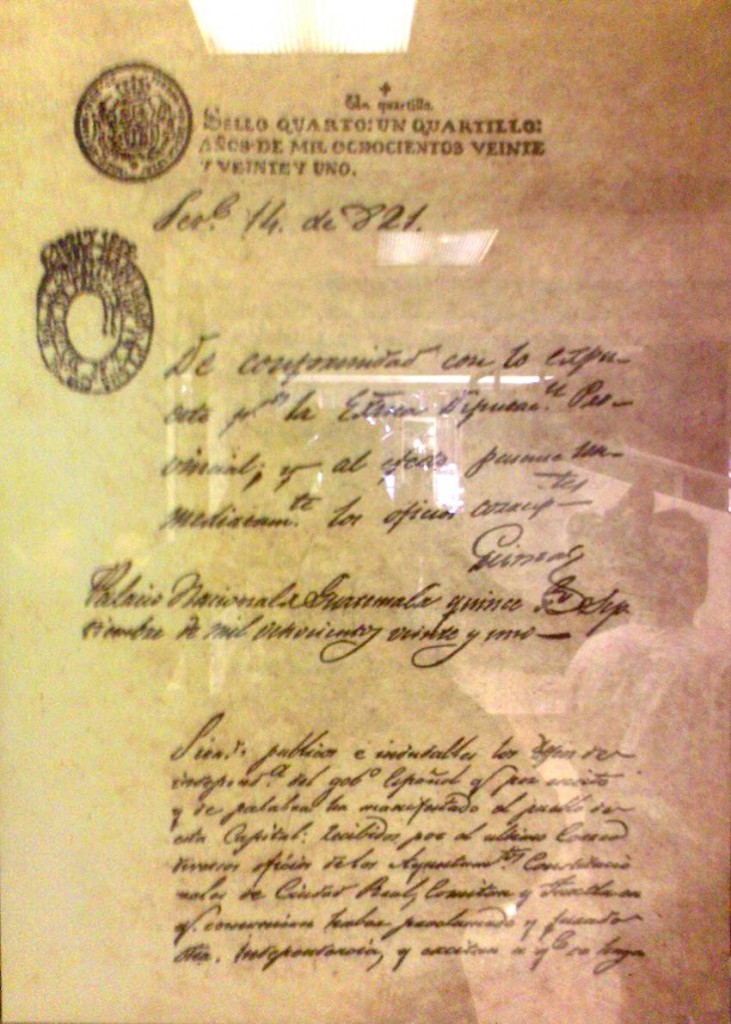 Un quartillo.
SELLO QUARTO: UN QUARTILLO:
AÑOS DE MIL OCHOCIENTOS VEINTE
Y VEINTE Y UNO.
14. de 821.
De conformidad con lo espu-
esto pr. la Exma Diputacn. Pro-
vincial; y al efecto pasense in-
mediatamte. los oficios
Palacio Nacional de Guatemala quince de Sep
tiembre de mil ochocientos veinte y uno
Siendo publicos e indudables los deseos de
independa. del gobo. Español q. por escrito
y de palabra ha manifestado el pueblo de
esta Capital: recibidos por el ultimo Correo
diversos oficios de los Ayuntamtos. Constitucio
nales de Ciudad Real, Comitan y Tuxtla en
q. comunican haber proclamado y jurado
dha. independencia, y excitan a qe. se haga